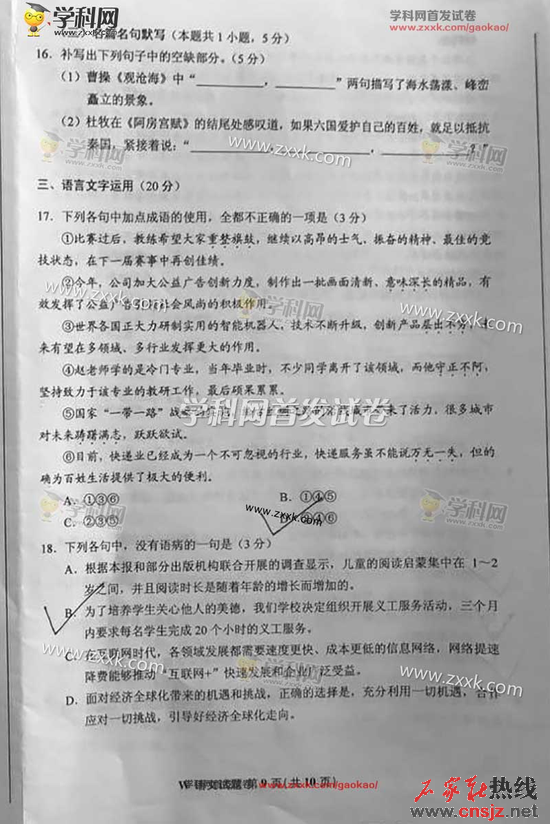 学科网
zxxk.com
学科网首发试卷
www.zxxk.com/gaokao/
名篇名句默写（本题共1小题，5分）
16. 补写出下列句子中的空缺部分。（5分）
（1）曹操《观沧海》中“____________，____________”两句描写了海水荡漾、峰峦
矗立的景象。
（2）杜牧在《阿房宫赋》的结尾处感叹道，如果六国爱护自己的百姓，就足以抵抗
秦国，紧接着说：“____________，____________？”
学科网
zxxk.com
www.zxxk.com
三、语言文字运用（20分）
17. 下列各句中加点成语的使用，全都不正确的一项是（3分）
①比赛过后，教练希望大家重整旗鼓，继续以高昂的士气、振奋的精神、最佳的竞
技状态，在下一届赛事中再创佳绩。
②今年，公司加大公益广告创新力度，制作出一批画面清新、意味深长的精品，有
效发挥了公益广告引领社会风尚的积极作用。
学科网
zxxk.com
www.zxxk.com
③世界各国正大力研制实用的智能机器人，技术不断升级，创新产品层出不穷，未
来有望在多领域、多行业发挥更大的作用。
④赵老师学的是冷门专业，当年毕业时，不少同学离开了该领域，而他守正不阿，
坚持致力于该专业的教研工作，最后硕果累累。
⑤国家“一带一路”战略 来了活力，很多城市
学科网首发试卷
对未来踌躇满志，跃跃欲试。
⑥目前，快递业已经成为一个不可忽视的行业，快递服务虽不能说万无一失，但的
确为百姓生活提供了极大的便利。
A. ①③⑥
B. ①④⑤
C. ②③⑤
D. ②④⑥
学科网
zxxk.com
www.zxxk.com
学科网
zxxk.com
18. 下列各句中，没有语病的一句是（3分）
A. 根据本报和部分出版机构联合开展的调查显示，儿童的阅读启蒙集中在 1～2
岁之间，并且阅读时长是随着年龄的增长而增加的。
B. 为了培养学生关心他人的美德，我们学校决定组织开展义工服务活动，三个月
内要求每名学生完成 20 个小时的义工服务。
C. 在互联网时代，各领域发展都需要速度更快、成本更低的信息网络，网络提速
降费能够推动“互联网+”快速发展和企业广泛受益。
学科网
zxxk.com
www.zxxk.com
D. 面对经济全球化带来的机遇和挑战，正确的选择是，充分利用一切机遇，合作
应对一切挑战，引导好经济全球化走向。
语文试题 第 9 页（共 10 页）
www.zxxk.com/gaokao/
石家庄热线
www.cnsjz.net